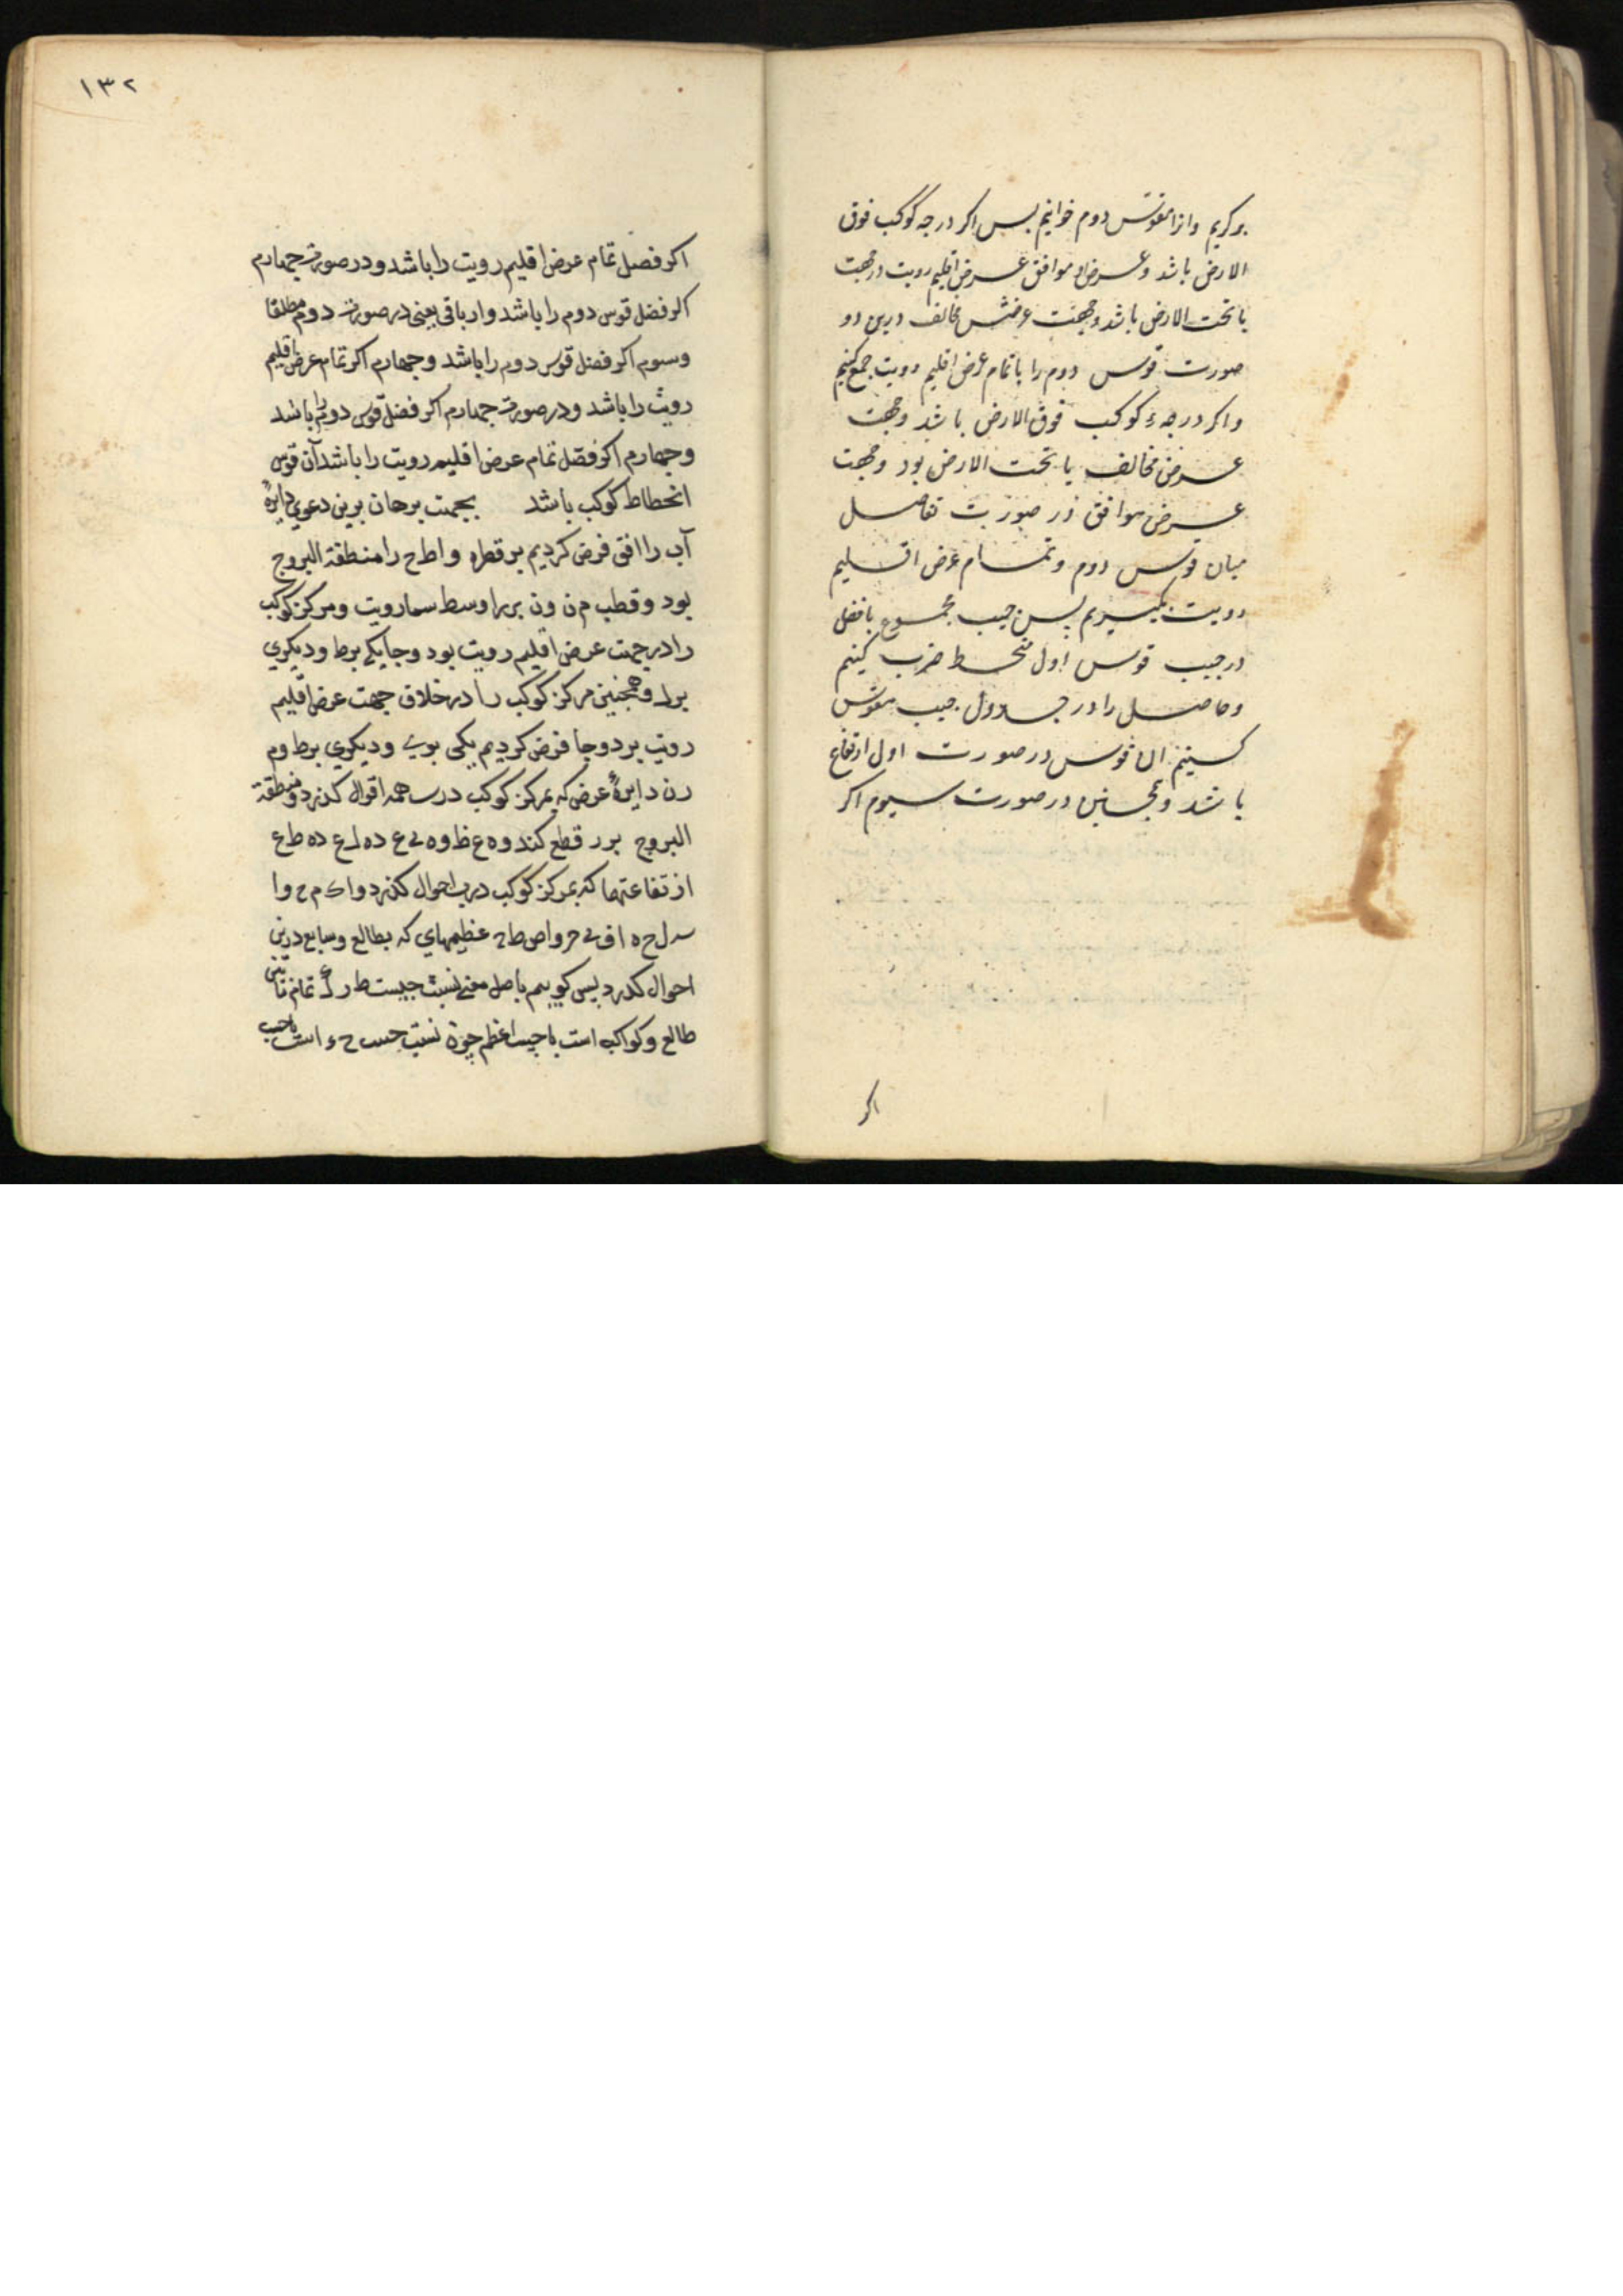 برکریم وانرا مقوس دوم خوانیم پس اکر درجه کوکب فوق
الارض باشد وعرض او موافق عرض اقلیم رویت در جهت
یا تحت الارض باشد وجهت عرضش مخالف درین دو
صورت قوس دوم را با تمام عرض اقلیم رویت جمع کنیم
واکر درجهء کوکب فوق الارض باشد وجهت
عرض مخالف یا تحت الارض بود وجهت
عرض موافق در صورت تفاصل
میان قوس دوم وتمام عرض اقلیم
رویت بکیریم پس جیب مجموع یا فضل
در جیب قوس اول منحط ضرب کنیم
وحاصل را در جدول جیب مقوس
کنیم ان قوس در صورت اول ارتفاع
باشد وهمچنین در صورت سیوم اکر
اکر
۱۳۲
اکر فصل تمام عرض اقلیم رویت را باشد ودر صورت چهارم
اکر فضل قوس دوم را باشد وار باقی یعنی در صورت دوم مطلقا
وسوم اکر فضل قوس دوم را باشد وجهارم اکر تمام عرض اقلیم
رویت را باشد ودر صورت چهارم اکر فضل قوس دوم را باشد
وجهارم اکر فضل تمام عرض اقلیم رویت را باشد آن قوس
انحطاط کوکب باشد بجهت برهان برین دعوی دایرهٔ
آب را افق فرض کردیم بر قطر ه واط ح را منطقة البروج
بود وقطب م ن ون بر را وسط سما رویت ومرکز کوکب
را در جهت عرض اقلیم رویت بود وجا یکی بر ط ودیکری
بر ل وهمچنین مرکز کوکب را در خلاف جهت عرض اقلیم
رویت بر دو جا فرض کردیم یکی بر ی ودیکری بر ط وم
ر ن دایرهٔ عرض که بمرکز کوکب در همه اقوال کذرد ومنطقة
البروج بر ر قطع کند و ه ع ظ و ه ی ع ده ل ع ده ط ع
ارتفاعتها که بمرکز کوکب درین احوال کذرد وا ک م ح وا
س ل ح ه ا ف ی ح وا ص ط ح عظیمهای که بطالع وسابع درین
احوال کذرد پس کوییم باصل مغنی نسبت جیب ط ر تمام
طالع وکواکب است با جیب اعظم چون نسبت جیب ح ء است با جیب